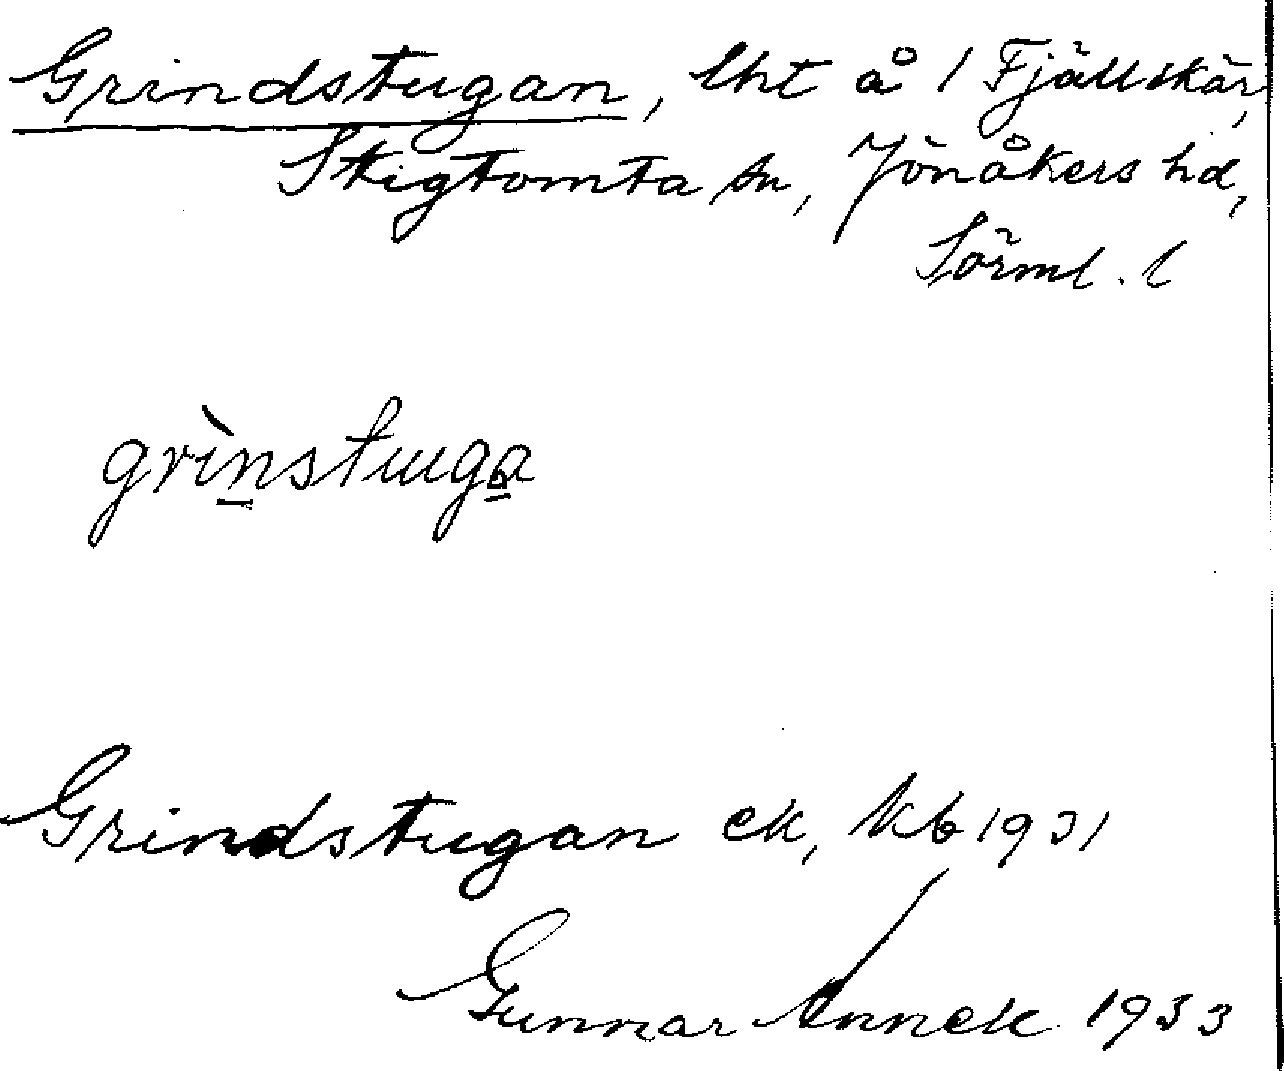 Grindstugan, lht å 1 Fjällskär,
Stigtomta sn, Jönåkers hd,
Sörml. l
grìnstuga
Grindstugan ek, Kb 1931
Gunnar Annek 1933